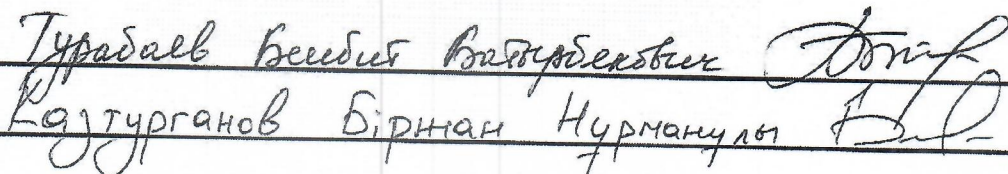 Турабаев Бейбит Батырбекович
Казтурганов Біржан Нұрманұлы